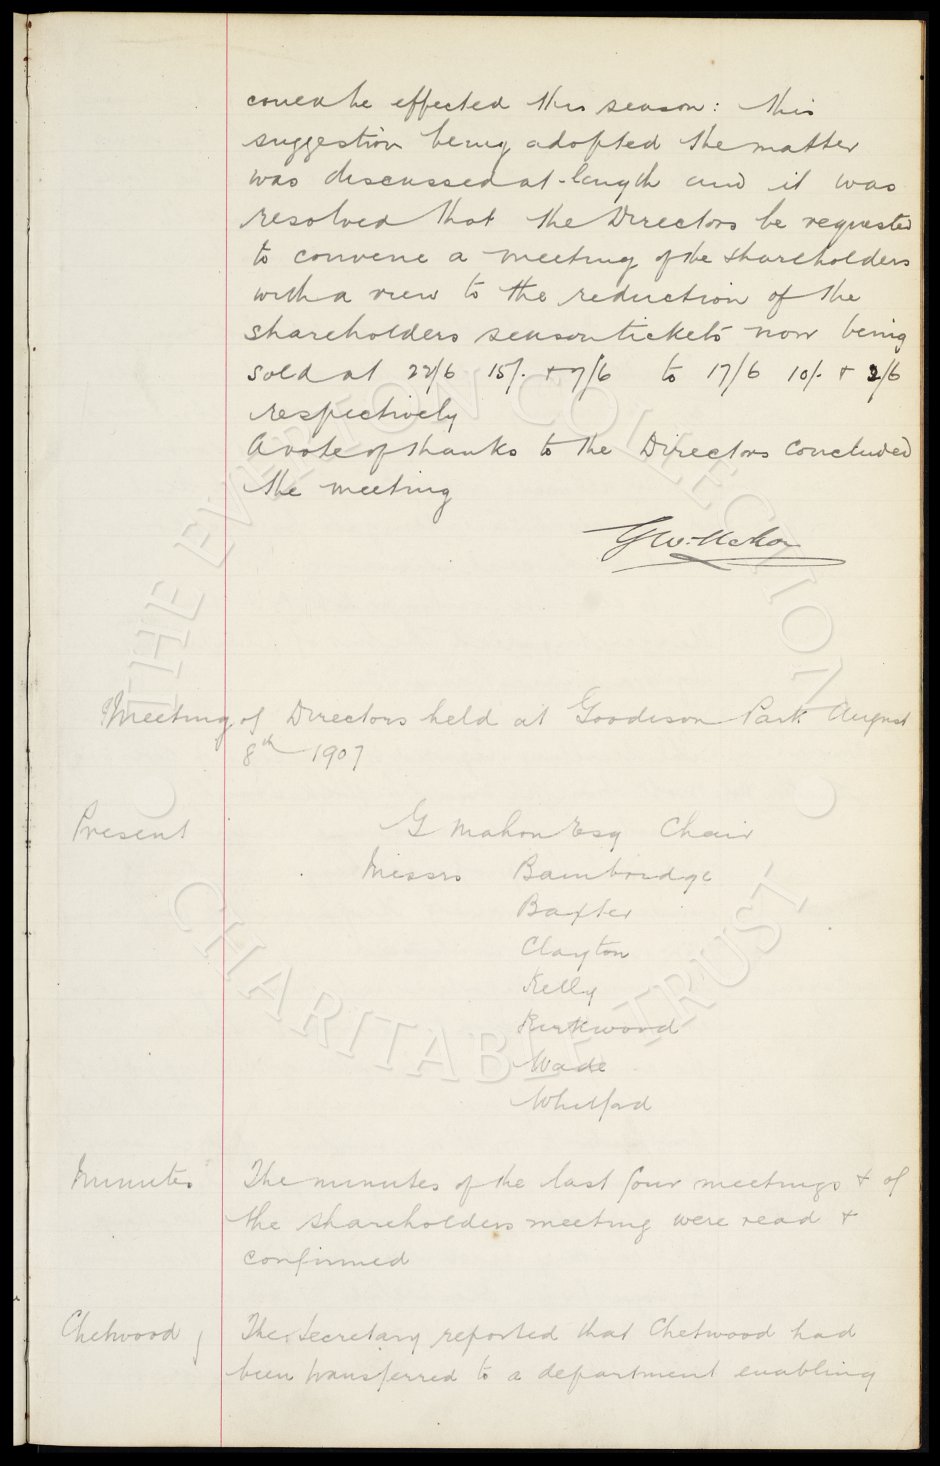 could be effected this season: this
suggestion being adopted the matter
was discussed at length and it was
resolved that the Directors be requested
to convene a meeting of the shareholders
with a view to the reduction of the
shareholders season tickets now being
sold at 22/6 15/- + 7/6 to 17/6 10/- + 2/6
respectively
A vote of thanks to the Directors concluded
the meeting
Meeting of Directors held at Goodison Park August
8th 1907
Present G Mahon Esq Chair
Messrs Bainbridge
Baxter
Clayton
Kelly
Kirkwood
Wade
Whitford
Minutes The minutes of the last four meetings + of
the shareholders meeting were read +
confirmed
Chetwood The Secretary reported that Chetwood had
been transferred to a department enabling
THE EVERTON COLLECTION
CHARITABLE TRUST